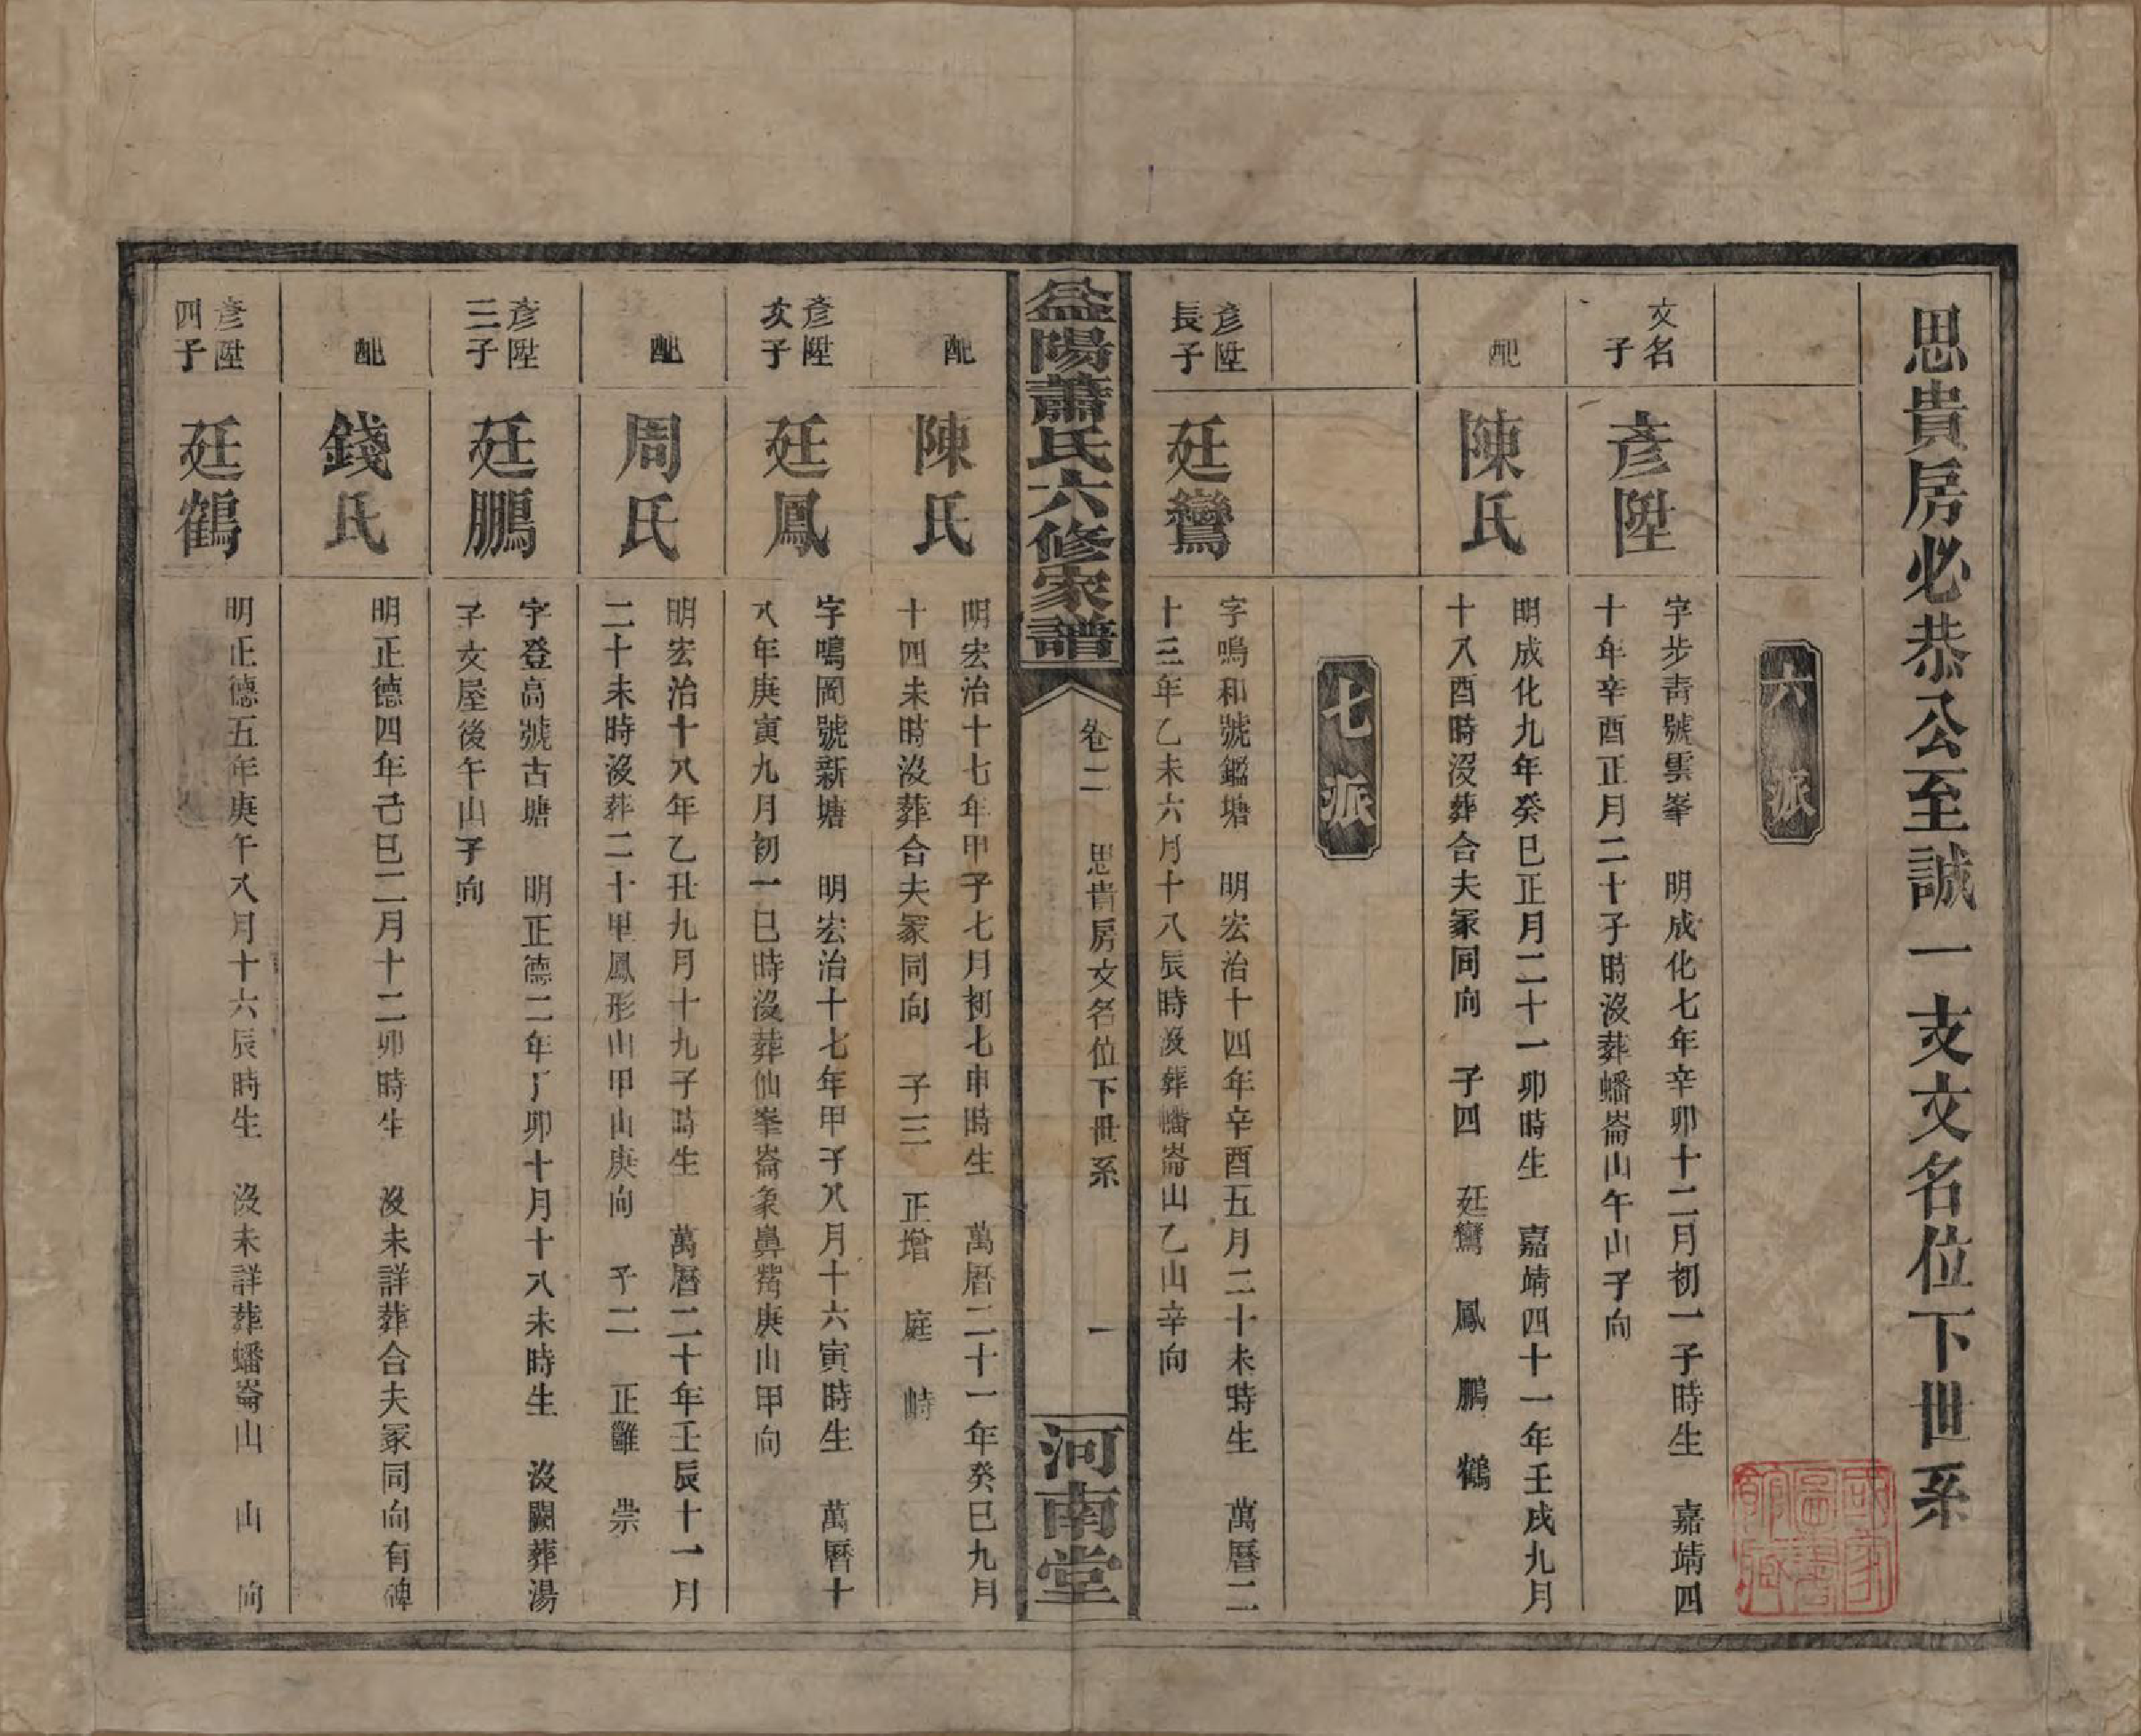 思貴房必恭公至誠一支文名位下世系
六派
文名
子
彥陞
字步青號雲峯　明成化七年辛卯十二月初一子時生　嘉靖四
十年辛酉正月二十子時沒葬蟠崙山午山子向
配
陳氏
明成化九年癸巳正月二十一卯時生　嘉靖四十一年壬戌九月
十八酉時沒葬合夫冢同向　子四　廷鸞　鳳　鵬　鶴
七派
彥陞
長子
廷鸞
字鳴和號鑑塘　明宏治十四年辛酉五月二十未時生　萬曆二
十三年乙未六月十八辰時沒葬蟠崙山乙山辛向
益陽蕭氏六修家譜
卷二　思貴房文名位下世系　一
河南堂
配
陳氏
明宏治十七年甲子七月初七申時生　萬曆二十一年癸巳九月
十四未時沒葬合夫冢同向　子三　正增　庭　時
彥陞
次子
廷鳳
字鳴岡號新塘　明宏治十七年甲子八月十六寅時生　萬曆十
八年庚寅九月初一巳時沒葬仙峯崙象鼻嘴庚山甲向
配
周氏
明宏治十八年乙丑九月十九子時生　萬曆二十年壬辰十一月
二十未時沒葬二十甲鳳形山甲山庚向　子二　正雝　崇
彥陞
三子
廷鵬
字登高號古塘　明正德二年丁卯十月十八未時生　沒闕葬湯
子文屋後午山子向
配
錢氏
明正德四年己巳二月十二卯時生　沒未詳葬合夫冢同向有碑
彥陞
四子
廷鶴
明正德五年庚午八月十六辰時生　沒未詳葬蟠崙山　山　向